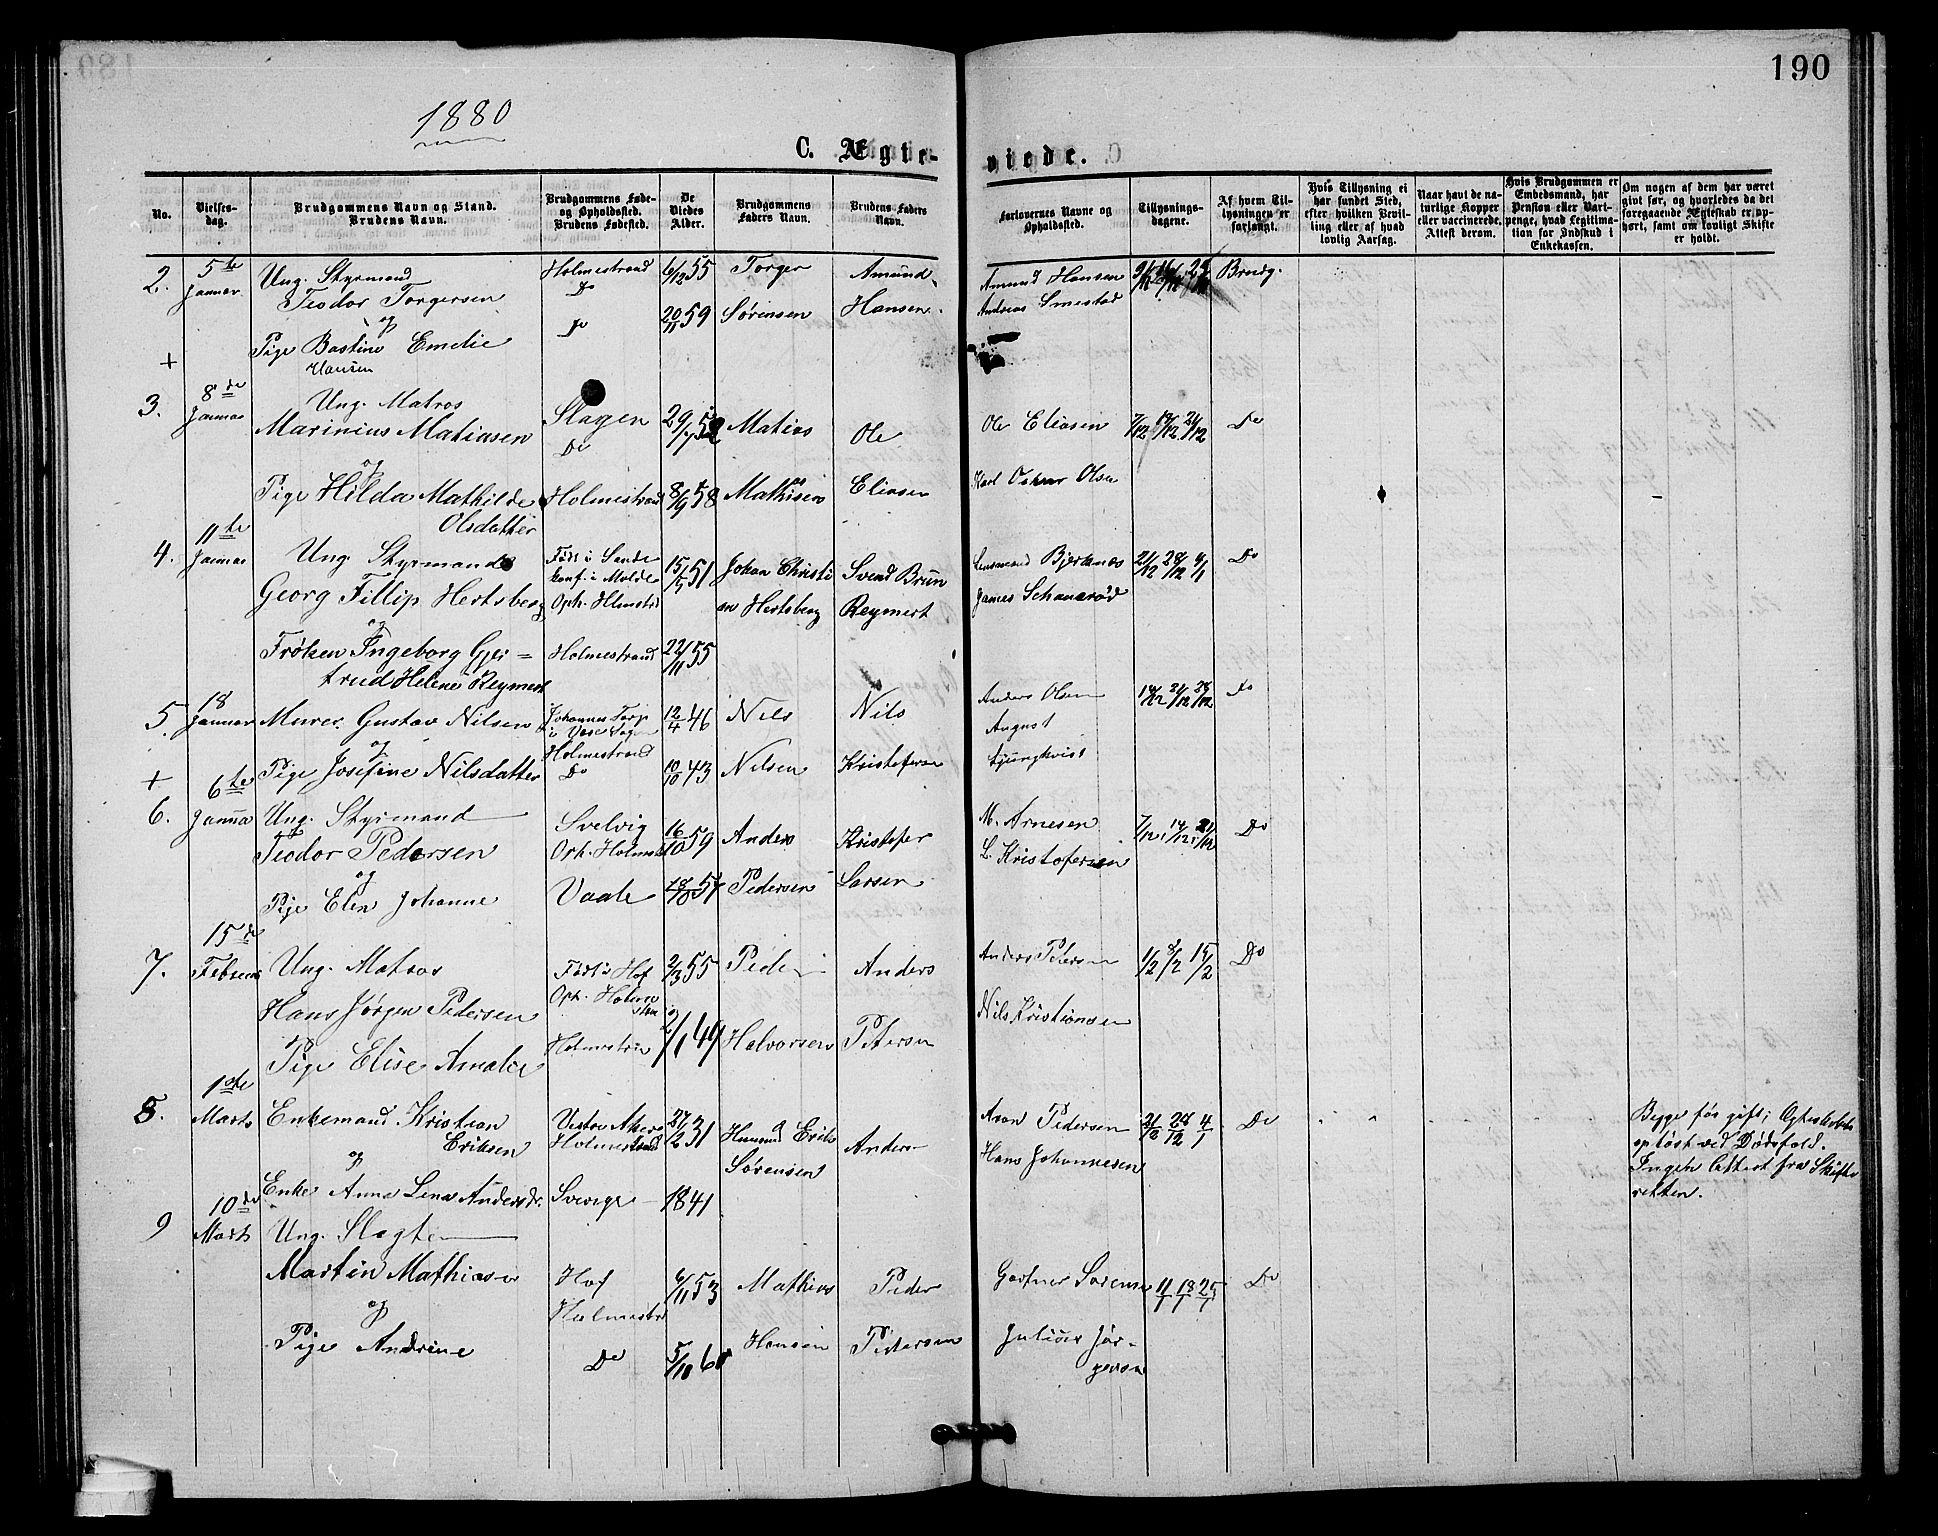 190
1880
C. Ægte-
viede.
No.
Vielses-
dag.
Brudgommens Navn og Stand.
Brudens Navn.
Brudgommens Føde-
og Opholdssted.
Brudens Fødested.
De
Viedes
Alder.
Brudgommens
Faders Navn.
Brudens Faders
Navn.
Forlovernes Navne og
Opholdssted.
Tillysnings-
dagene.
Af hvem Til-
lysningen er
forlangt.
Hvis Tillysning ei
har fundet Sted,
efter hvilken Bevil-
ling eller af hvad
lovlig Aarsag.
Naar havt de na-
turlige Kopper
eller vaccinerede.
Attest derom.
Hvis Brudgommen er
Embedsmand, har
Pension eller Vart-
penge, hvad Legitima-
tion for Indskud i
Enkekassen.
Om nogen af dem har været
givt før, og hvorledes da det
foregaaende Ægteskab er op-
hørt, samt om lovligt Skifte
er holdt.
2. 5te Januar
Ung. Styrmand
Teodor Torgersen
og
Pige Bastine Emelie
Hansen
Holmestrand
Do
Do
6/12 55
20/11 59
Torger
Sørensen
Amund
Hansen
Amund Hansen
Andreas Smestad
Brudg.
+
3. 8de Januar
Ung. Matros
Marinius Matiasen
og
Pige Hilda Mathilde
Olsdatter
Slagen
Do
Holmestrand
29/7 52
8/9 58
Matias
Mathisen
Ole
Eliasen
Ole Eliasen
Karl Oskar Olsen
7/12 14/12 21/12
Do
4. 11te Januar
Ung. Styrmand
Georg Fillip Hertsberg
og
Frøken Ingeborg Gjer=
trud Helene Reymert
Født i Sande
konf. i Molde
Oph. Hlmstrd
Holmestrand
15/5 51
22/11 55
Johan Christi
an Hertsberg
Svend Brun
Reymert
Lensmand Bjerknes
James Schanerød
21/12 28/12 4/1
Do
5. 18 Januar
Murer. Gustav Nilsen
og
Pige Josefine Nilsdatter
Johannes Torp
Holmestrand
Do
12/4 46
10/10 43
Nils
Nilsen
Nils
Kristofersen
Anders Olsen
August
Ljungkvist
14/12 21/12 28/12
Do
+
6. 6te Janua
Ung. Styrmand
Teodor Pedersen
og
Pige Elen Johanne
Svelvig
Oph. Holmest
Vaale
16/10 59
Anders
Pedersen
Kristofer
Larsen
M. Arnesen
L. Kristofersen
7/12 14/12 21/12
Do
7. 15de Februar
Ung. Matros
Hans Jørgen Pedersen
og
Pige Elise Amalie
Født i Hof
Oph. Holme
stra
Holmestran
2/3 55
2/1 49
Peder
Halvorsen
Anders
Petersen
Anders Petersen
Nils Kristiansen
1/2 8/2 15/2
Do
8. 1ste Marts
Enkemand Kristian
Eriksen
og
Enke Anna Lena Andersdr.
Vestre Akers
Holmestrand
Sverige
27/12 31
1841
Erik
Sørensen
Anders
Aron Pedersen
Hans Johannesen
21/12 28/12 4/1
Do
Begge før gift; Ægteskabet
opløst ved Dødsfald.
Ingen Attest fra Skifte
retten.
9 10de Marts
Ung. Slagter
Martin Mathiasen
og
Pige Andrine
Hof
Holmestrd
Do
6/11 53
5/10 60
Mathias
Hansen
Peder
Pedersen
Gartner Sørensen
Julius Jør-
gensen
11/1 18/1 25/1
Do